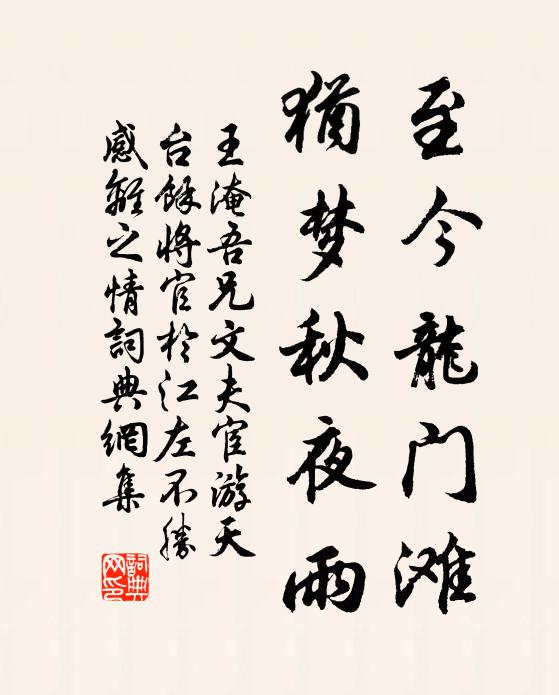 至今龍门滩
猶梦秋夜雨
王淹吾兄文夫宦游天
台馀将官於江左不勝
感離之情詞典網集
詞典網印